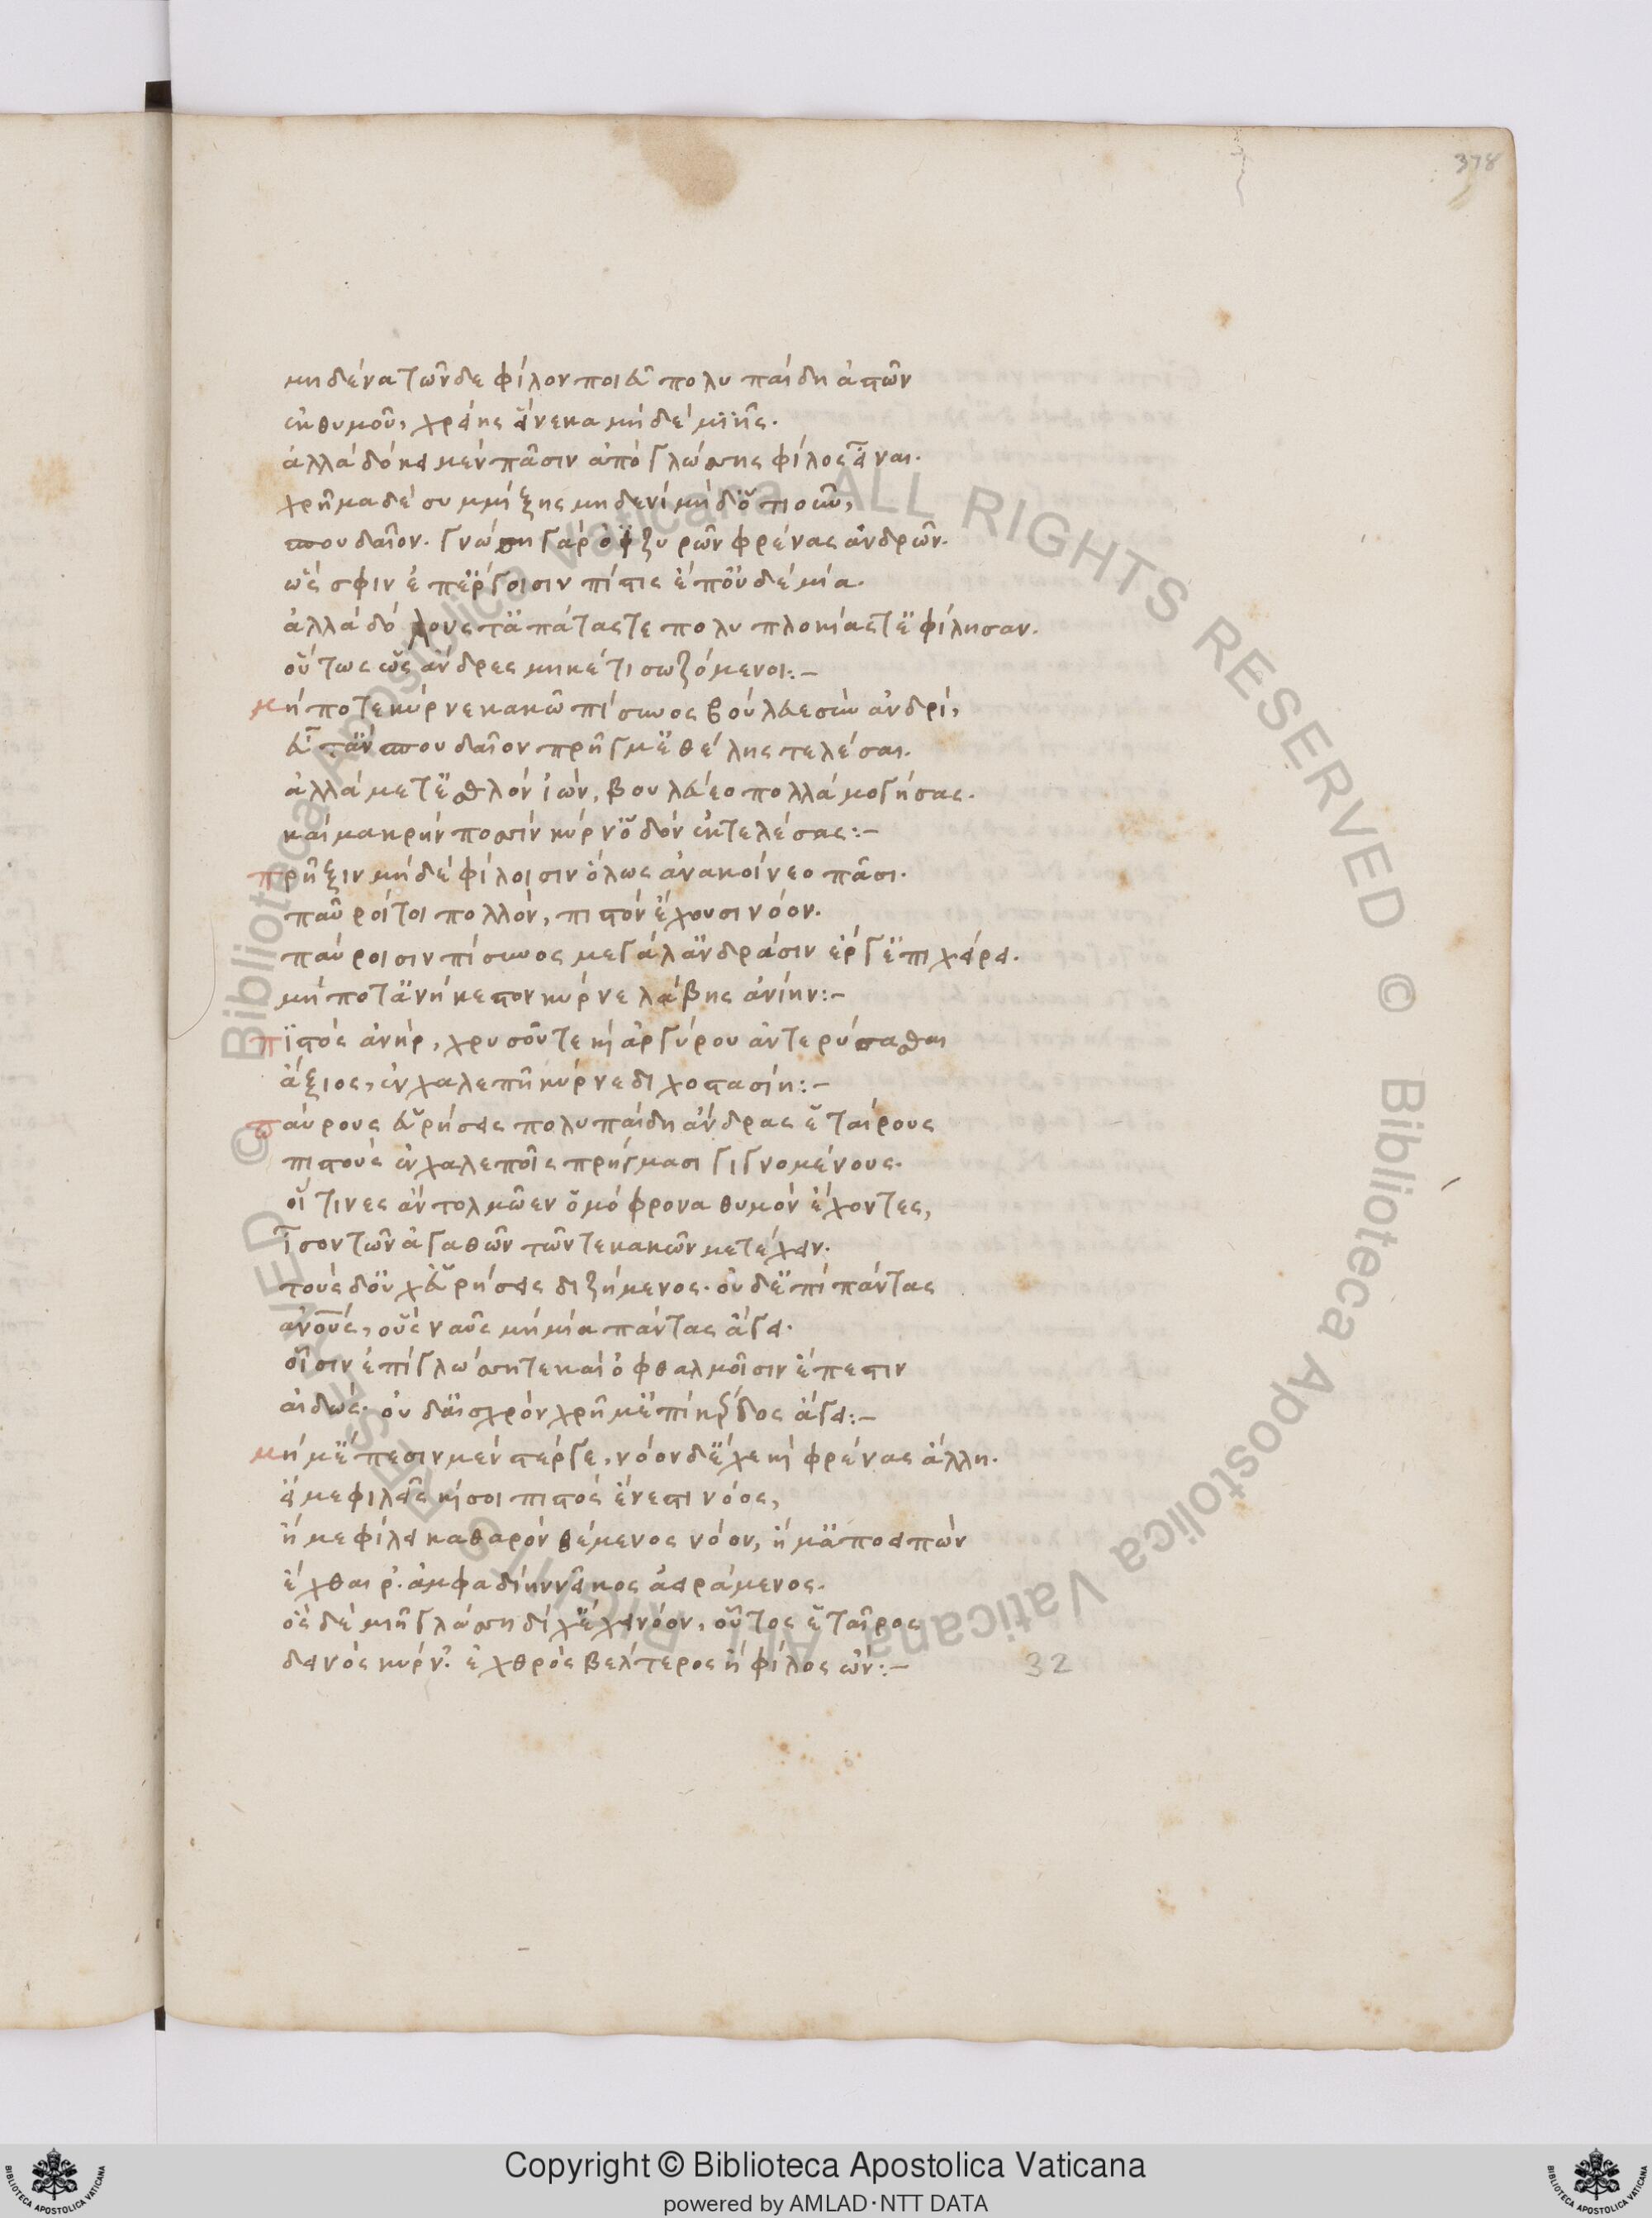 378
μηδένα τῶνδε φίλον ποιεῦ πολυπαίδη ἀστῶν
ἐκ θυμοῦ, χρείης εἵνεκα μὴδὲ μιῆς.
ἀλλὰ δόκει μὲν πᾶσιν ἀπὸ γλώσσης φίλος εἶναι.
χρῆμα δὲ συμμίξης μηδενὶ μὴδ' ὁτιοῦν,
σπουδαῖον. γνώσῃ γὰρ ὀϊζυρῶν φρένας ἀνδρῶν.
ὥς σφιν ἐπ' ἔργοισιν πίστις ἔπ' οὐδεμία.
ἀλλὰ δόλους τ' ἀπάτας τε πολυπλοκίας τ' ἐφίλησαν.
οὕτως ὡς ἄνδρες μηκέτι σωζόμενοι:-
μήποτε κύρνε κακῶ πίσυνος βούλευε σὺν ἀνδρί,
εὖτ' ἂν σπουδαῖον πρῆγμ' ἐθέλης τελέσαι.
ἀλλὰ μετ' ἐσθλὸν ἰὼν, βουλεύεο πολλὰ μογήσας.
καὶ μακρὴν ποσσὶν κύρν' ὁδὸν ἐκτελέσας:-
πρῆξιν μὴδὲ φίλοισιν ὅλως ἀνακοίνεο πᾶσι.
παῦροί τοι πολλὸν, πιστὸν ἔχουσι νόον.
παύροισιν πίσυνος μεγάλ' ἀνδράσιν ἔργ' ἐπιχείρει.
μήποτ' ἀνήκεστον κύρνε λάβης ἀνίην:-
πιστὸς ἀνὴρ, χρυσοῦ τε κὶ ἀργύρου ἀντερύσασθαι
ἄξιος, ἐν χαλεπῆ κύρνε διχοστασίη:-
παύρους εὑρήσεις πολυπαίδη ἄνδρας ἑταίρους
πιστοὺς ἐν χαλεποῖς πρήγμασι γιγνομένους.
οἵτινες ἂν τολμῶεν ὁμόφρονα θυμὸν ἔχοντες,
ἶσον τῶν ἀγαθῶν τῶν τε κακῶν μετέχειν.
τοὺς δ' οὐχ εὑρήσεις διζήμενος. οὐδ' ἐπὶ πάντας
ἀνους, οὓς ναῦς μὴ μία πάντας ἄγει.
οἷσιν ἐπὶ γλώσση τε καὶ ὀφθαλμοῖσιν ἔπεστιν
αἰδώς. οὐδ' αἰσχρὸν χρῆμ' ἐπὶ κέρδος ἄγει:-
μή μ' ἔπεσιν μὲν στέργε, νόον δ' ἔχε κὶ φρένας ἄλλη.
εἴ με φιλεῖς κί σοι πιστὸς ἔνεστι νόος,
ἤ με φίλει καθαρὸν θέμενος νόον, ἤ μ' ἀποειπὼν
ἔχθαιρ'. ἀμφαδίην νεῖκος ἀειράμενος.
ὃς δὲ μιῆ γλώσση δίχ' ἔχει νόον, οὗτος ἑταῖρος
δεινὸς κύρν'. ἐχθρὸς βέλτερος ἢ φίλος ὤν:-
32
Copyright © Biblioteca Apostolica Vaticana
powered by AMLAD・NTT DATA